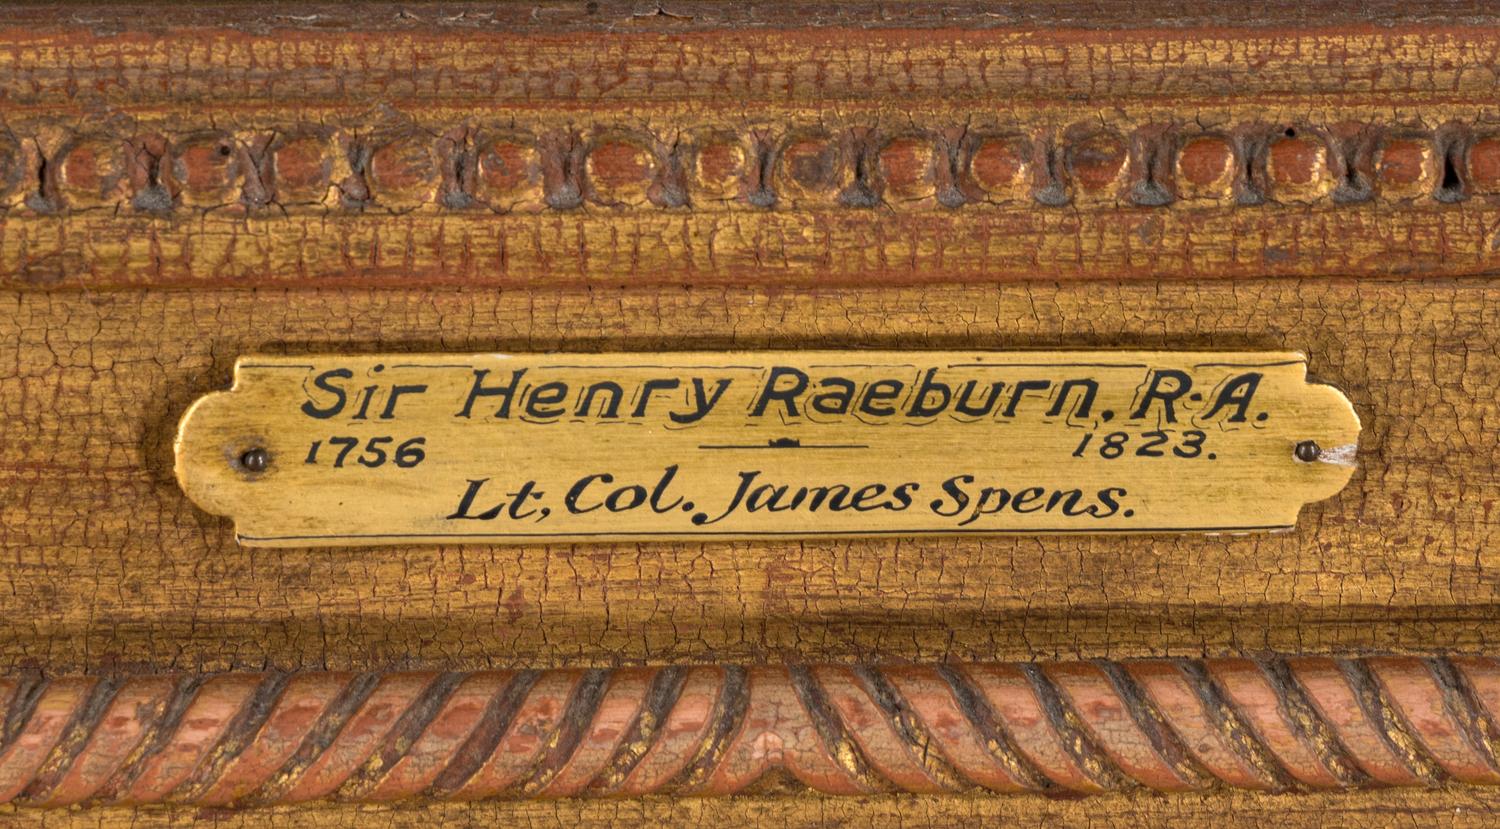 Sir Henry Raeburn, R.A.
1756 1823.
Lt, Col. James Spens.